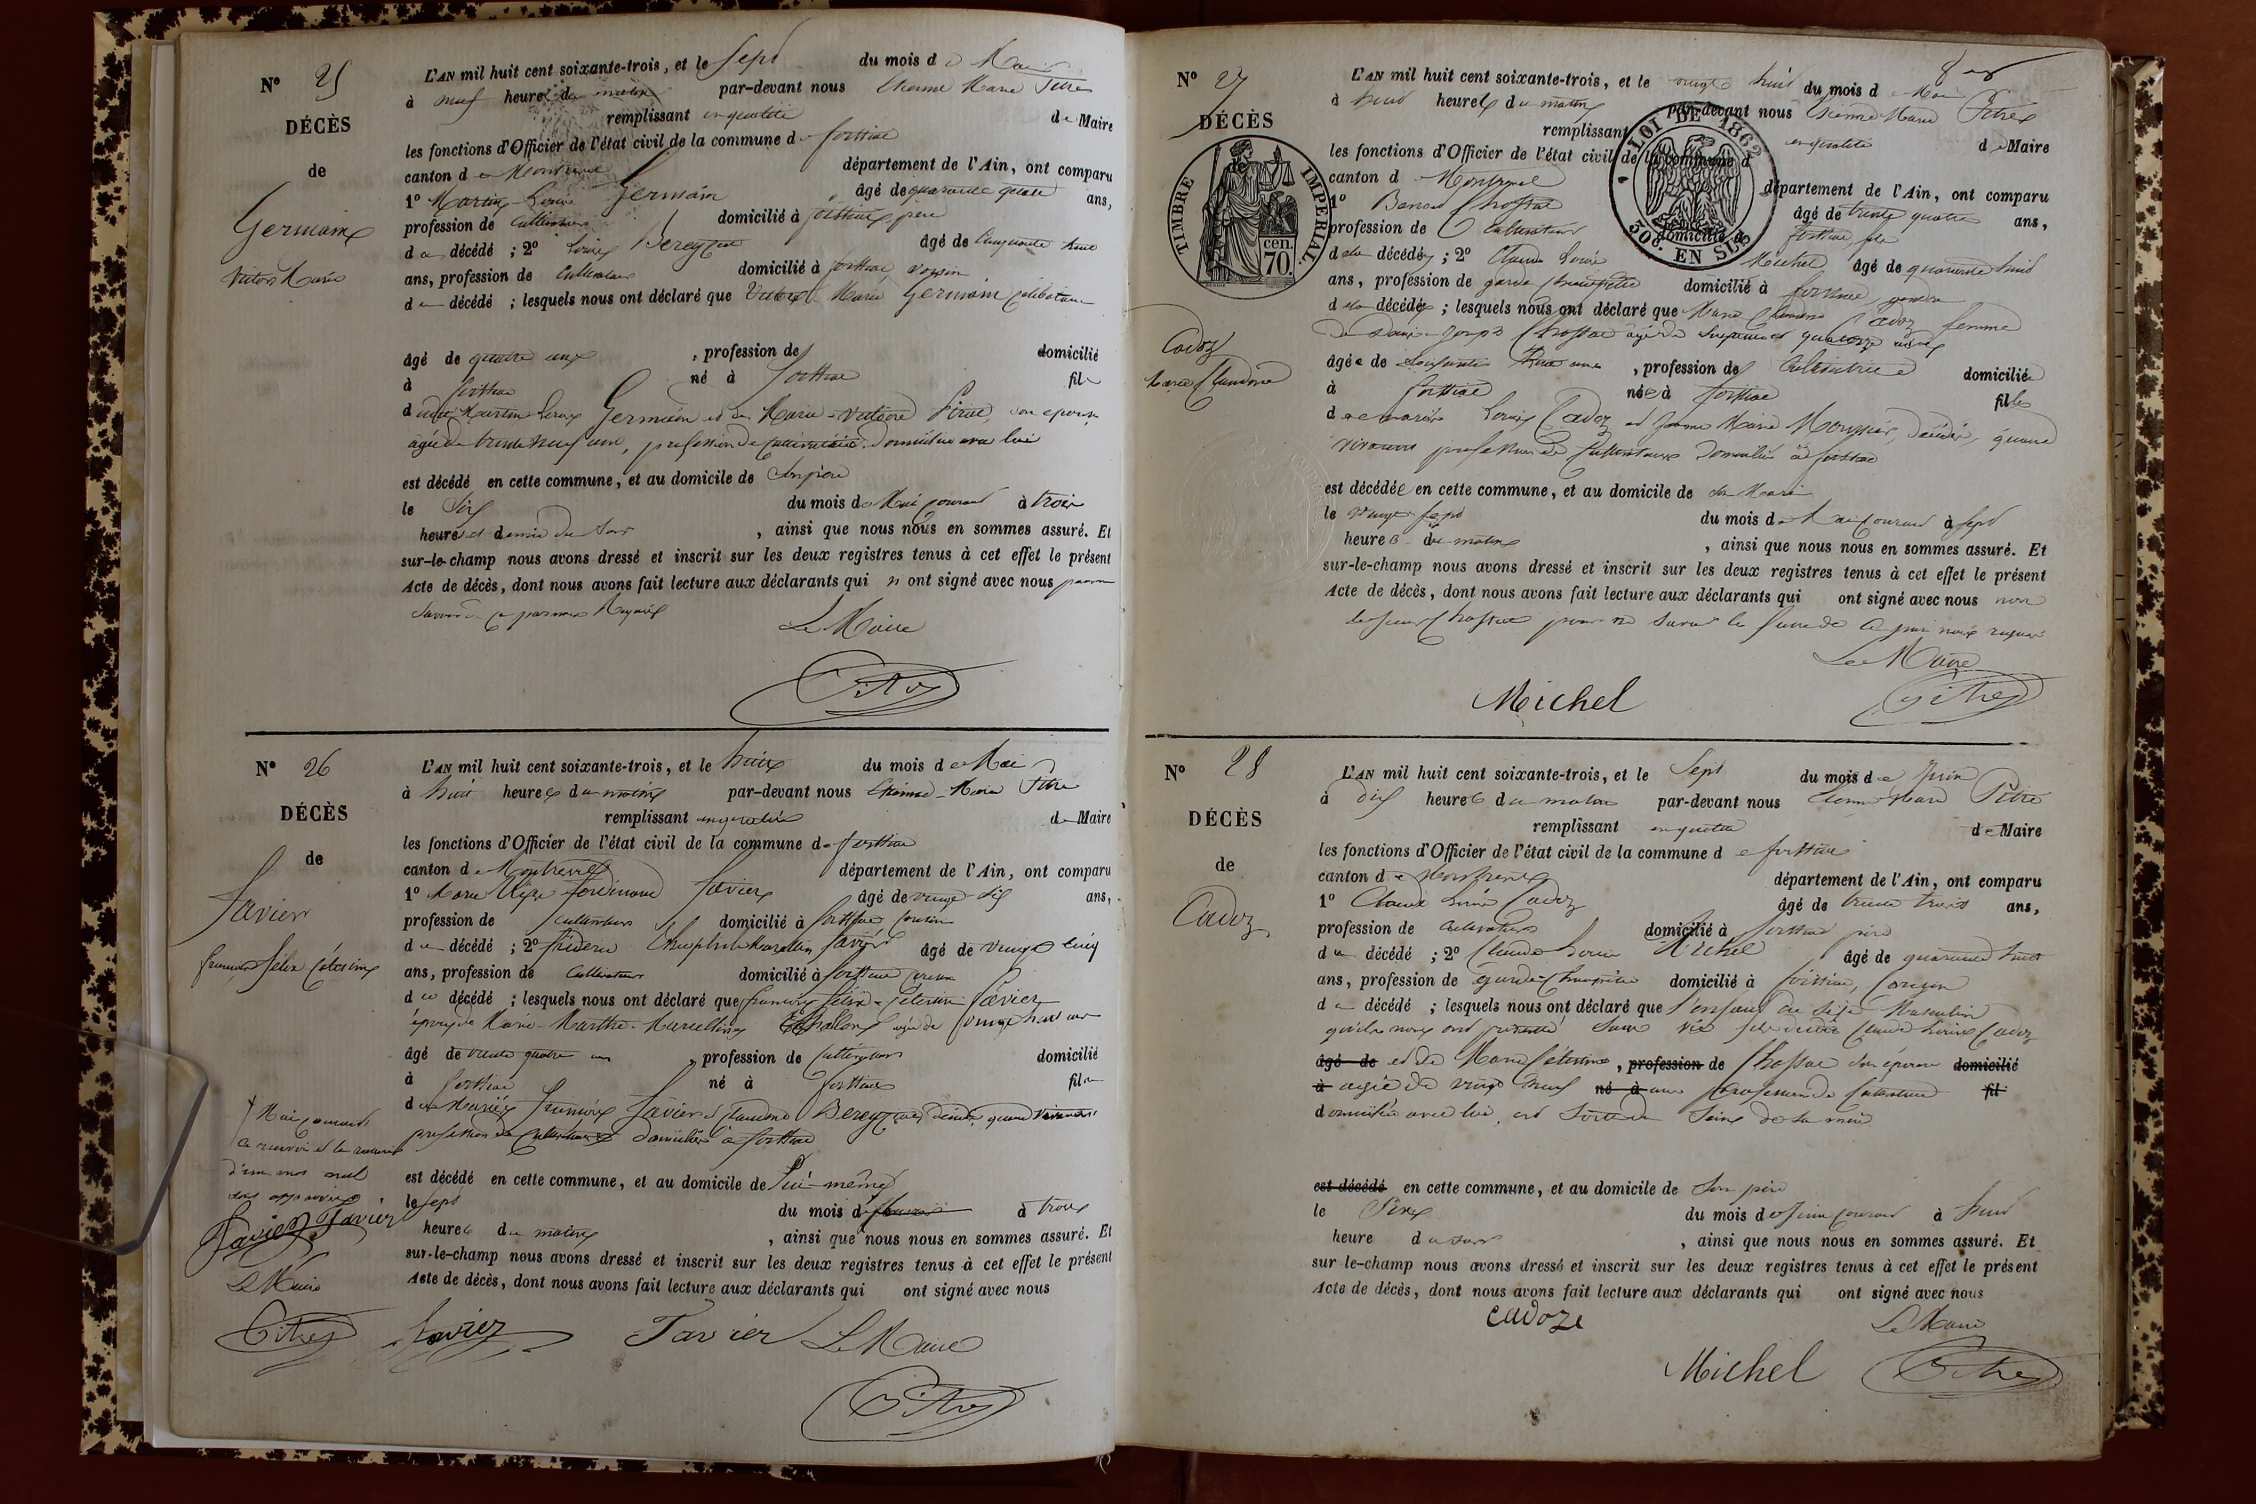 Nº 25
DÉCÈS
de
Germain
Victor Marie
L'AN mil huit cent soixante-trois, et le Sept du mois de Mai
à neuf heures du matin par-devant nous Etienne Marie Pitre
remplissant en qualité de Maire
les fonctions d'Officier de l'état civil de la commune de
canton de Montrevel département de l'Ain, ont comparu
1º Martin Louis Germain âgé de quarante quatre ans,
profession de cultivateur domicilié à père
du décédé ; 2º Louis âgé de cinquante huit
ans, profession de Cultivateur domicilié à voisin
du décédé ; lesquels nous ont déclaré que Victor Marie Germain célibataire
âgé de quatre ans , profession de domicilié
à né à fils
dudit Martin Louis Germain et de Marie son épouse
âgée de trente neuf ans, profession de cultivatrice domiciliée avec lui
est décédé en cette commune, et au domicile de Son père
le Six du mois de Mai courant à trois
heures et demie du soir , ainsi que nous nous en sommes assuré. Et
sur-le-champ nous avons dressé et inscrit sur les deux registres tenus à cet effet le présent
Acte de décès, dont nous avons fait lecture aux déclarants qui n ont signé avec nous pour ne
savoir
Le Maire
Pitre
Nº 26
DÉCÈS
de
Favier
François Félix Célestin
L'AN mil huit cent soixante-trois, et le huit du mois de Mai
à huit heures du matin par-devant nous Etienne Marie Pitre
remplissant en qualité de Maire
les fonctions d'Officier de l'état civil de la commune de
canton de Montrevel département de l'Ain, ont comparu
1º Marie Ferdinand Favier âgé de vingt six ans,
profession de cultivateur domicilié à cousin
du décédé ; 2º Théophile Marcellin Favier âgé de vingt cinq
ans, profession de Cultivateur domicilié à
du décédé ; lesquels nous ont déclaré que François Félix Célestin Favier
époux de Marie Marthe âgée de vingt huit ans
âgé de trente quatre ans , profession de Cultivateur domicilié
à né à fils
des mariés François Favier et Claudine décédés, quand vivants
profession de Cultivateurs domiciliés à
est décédé en cette commune, et au domicile de Lui-même
le sept du mois d à trois
heures du matin , ainsi que nous nous en sommes assuré. Et
sur-le-champ nous avons dressé et inscrit sur les deux registres tenus à cet effet le présent
Acte de décès, dont nous avons fait lecture aux déclarants qui ont signé avec nous
Mai courant
le renvoi et la rature
d'un mot nul
sont approuvés
Favier Favier
Le Maire
Pitre
Favier Favier Le Maire
Pitre
Nº 27
DÉCÈS
de
TIMBRE IMPÉRIAL
cen. 70.
LOI DE 1862
30c.
EN SUS
Cadoz
Marie Claudine
L'AN mil huit cent soixante-trois, et le vingt huit du mois de Mai
à huit heures du matin par-devant nous Etienne Marie Pitre
remplissant en qualité de Maire
les fonctions d'Officier de l'état civil de la commune d
canton d Montrevel département de l'Ain, ont comparu
1º âgé de trente quatre ans,
profession de Cultivateur domicilié à fils
de la décédée ; 2º Claude Louis Michel âgé de quarante huit
ans, profession de garde champêtre domicilié à gendre
de la décédée ; lesquels nous ont déclaré que Marie Claudine Cadoz femme
de âgé de soixante et quatorze
âgée de soixante ans , profession de Cultivatrice domiciliée
à née à fille
des mariés Louis Cadoz et Marie décédés, quand
vivants profession de Cultivateurs domiciliés à
est décédée en cette commune, et au domicile de son Mari
le vingt sept du mois de Mai courant à sept
heures du matin , ainsi que nous nous en sommes assuré. Et
sur-le-champ nous avons dressé et inscrit sur les deux registres tenus à cet effet le présent
Acte de décès, dont nous avons fait lecture aux déclarants qui ont signé avec nous non
le sieur pour ne savoir le faire de ce par nous requis
Le Maire
Michel Pitre
Nº 28
DÉCÈS
de
Cadoz
L'AN mil huit cent soixante-trois, et le Sept du mois de Juin
à dix heures du matin par-devant nous Etienne Marie Pitre
remplissant en qualité de Maire
les fonctions d'Officier de l'état civil de la commune de
canton de Montrevel département de l'Ain, ont comparu
1º Claude Louis Cadoz âgé de trente trois ans,
profession de Cultivateur domicilié à père
du décédé ; 2º Claude Louis Michel âgé de quarante huit
ans, profession de garde champêtre domicilié à cousin
du décédé ; lesquels nous ont déclaré que l'enfant du sexe Masculin
qu'ils nous ont présenté sans vie fils dudit Claude Louis Cadoz
âgé de et de Marie Célestine , profession de son épouse domicilié
à âgée de vingt neuf né à ans profession de Cultivatrice fil
domiciliée avec lui, est sorti du sein de sa mère
est décédé en cette commune, et au domicile de Son père
le Six du mois de Juin courant à huit
heure du soir , ainsi que nous nous en sommes assuré. Et
sur-le-champ nous avons dressé et inscrit sur les deux registres tenus à cet effet le présent
Acte de décès, dont nous avons fait lecture aux déclarants qui ont signé avec nous
cadoze Le Maire
Michel Pitre